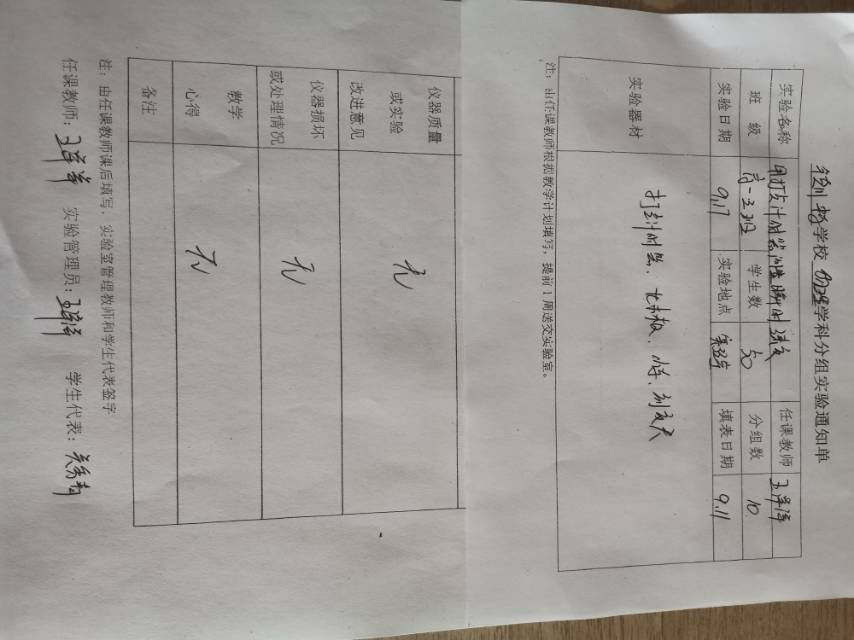 学校 物理学科分组实验通知单
实验名称 用打点计时器测量瞬时速度 任课教师
班 级 高一 班 学生数 50 分组数 10
实验日期 9.17 实验地点 实验室 填表日期 9.11
实验器材 打点计时器、长木板、小车、刻度尺
注：由任课教师根据教学计划填写，提前1周送交实验室。
仪器质量
或实验
改进意见
无
仪器损坏
或处理情况
无
教学
心得
无
备注
注：由任课教师课后填写，实验室管理教师和学生代表签字
任课教师： 实验管理员： 学生代表：